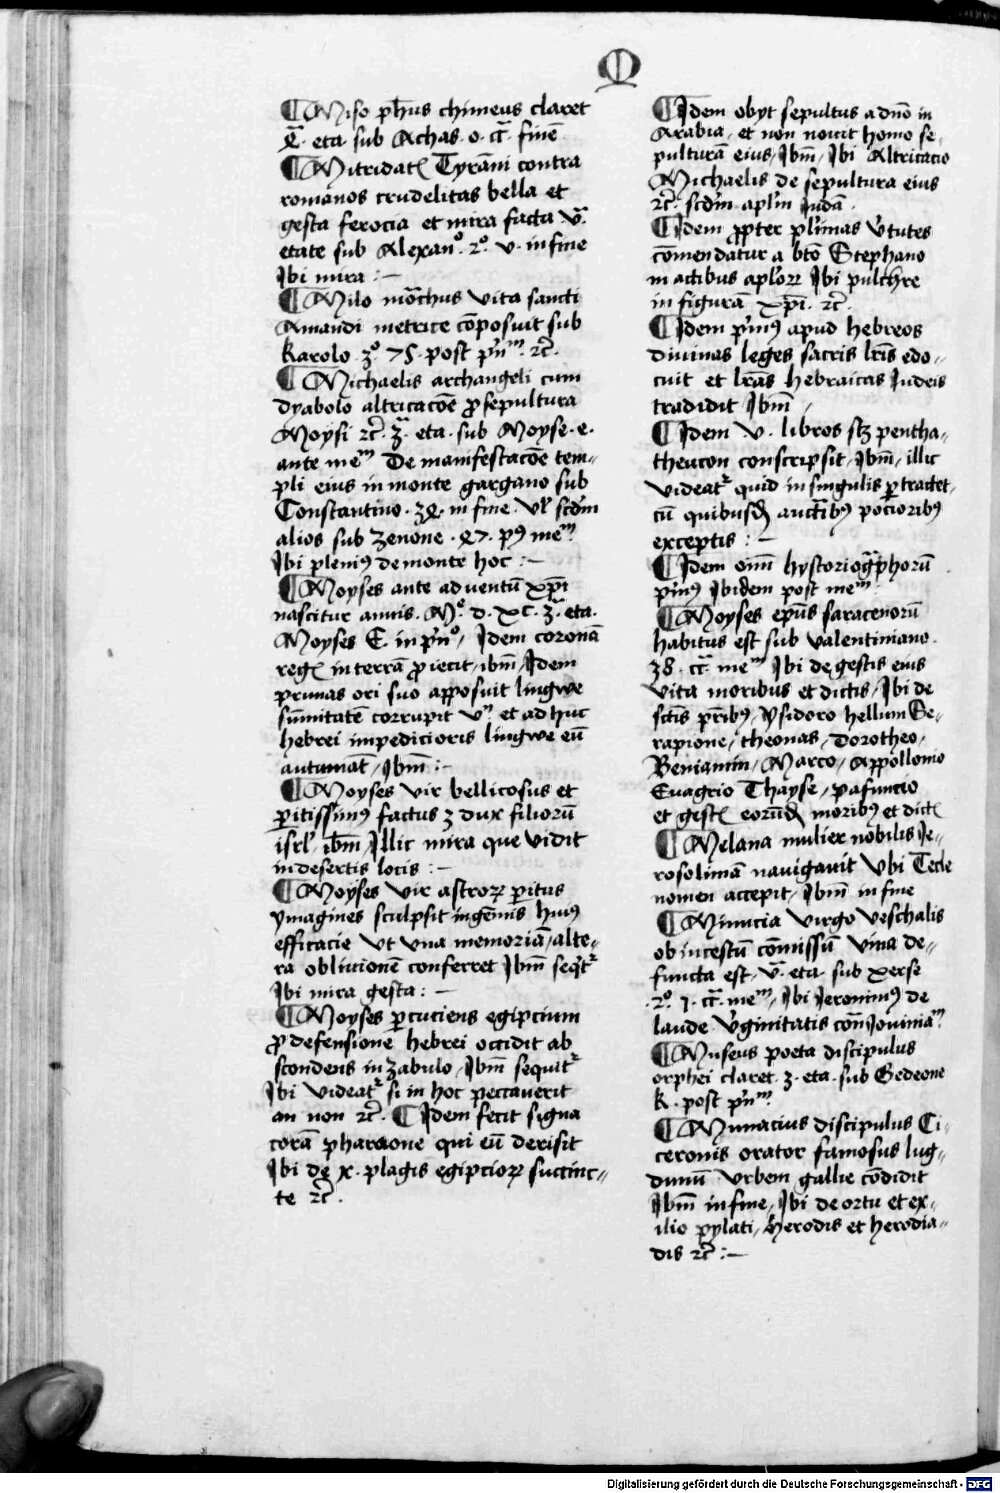 M
¶ Miso ph̄us chimeus claret
eta. sub Achas. o. cā. finē.
¶ Mitridatꝭ Tyrāni contra
romanos crudelitas bella et
gesta ferocia et mira facta v.ª
etate sub Alexanº. 2º. v. in fine
Ibi mira :—
¶ Milo mōchus vita sancti
Amandi metrice cōposuit sub
Karolo. 3º. 75. post pⁱnᵐ. ⁊c̄.
¶ Michaelis archangeli cum
dyabolo altricacōe ꝓ sepultura
Moysi ⁊c̄. 3ª. eta. sub Moyse. e.
ante meᵐ De manifestacōe tem-
pli eius in monte gargano sub
Constantino. in fine. Vl' scd'm
alios sub zenone. pꝰ meᵐ
Ibi pleniꝰ de monte hoc :—
¶ Moyses ante aduentū xp̄i
nascitur annis. Mº. d. xc. 3ª. eta.
Moyses E. in pⁱnº, Idem coronā
regꝭ in terrā ꝓiecit, ibm̄, Idem
prunas ori suo apposuit lingwe
sūmitatē corrupit vn̄. et adhuc
hebrei impedicioris lingwe eū
autumāt, Ibm̄ :—
¶ Moyses vir bellicosus et
ꝑitissimꝰ factus ⁊ dux filiorū
isrl', ibm̄, Illic mira que vidit
in desertis locis :—
¶ Moyses vir astroꝝ ꝑitus
ymagines sculpsit ingēnis huiꝰ
efficacie vt vna memoriā, alte-
ra obliuionē conferret Ibm̄ seqt'ʳ
Ibi mira gesta :—
¶ Moyses ꝑcuciens egipcium
ꝓ defensione hebrei occidit ab
scondens in zabulo, Ibm̄ sequitʳ
Ibi videatʳ si in hoc peccauerit
an non ⁊c̄. ¶ Idem fecit signa
corā pharaone qui eū derisit
Ibi de x. plagis egipcioꝝ succinc-
te ⁊c̄.
¶ Idem obyt sepultus a dn̄o in
Arabia, et non nouit homo se-
pulturā eius, Ibm̄, Ibi Altricacio
Michaelis de sepultura eius
⁊c̄. scd'm apl'm Iudā.
¶ Idem ꝓpter pl'imas v'tutes
cōmendatur a bt̄o Stephano
in actibus apl'oꝝ Ibi pulchre
in figurā xp̄i. ⁊c̄.
¶ Idem pⁱmꝰ apud hebreos
diuinas leges sacris lr̄is edo-
cuit et lr̄as hebraicas Iudeis
tradidit Ibm̄,
¶ Idem v. libros scꝫ pentha-
theucon conscripsit, Ibm̄, illic
videatʳ quid in singulis ꝑtractet-
cū quibusd̄ auctⁱbꝰ pocioribꝰ
exceptis :—
¶ Idem oīm hystoriogͣphorū
pⁱmꝰ Ibidem post meᵐ
¶ Moyses ep̄us saracenorū
habitus est sub valentiniano.
38. cā. meᵐ Ibi de gestis eius
vita moribus et dictis, Ibi de
sctīs pr̄ibꝰ, ysidoro hellium Se-
rapione, theonas, Dorotheo,
Beniamin, Marco, Appollonio
Euagrio Thayse, pafuncio
et gestꝭ eorūd̄ moribꝰ et dictꝭ
¶ Melana mulier nobilis Ie-
rosolimā nauigauit Vbi Tecle
nomen accepit, Ibm̄ in fine
¶ Minucia virgo veschalis
ob incestū cōmissū viua de-
functa est, v.ª eta. sub xerse
2º. 1. cā. meᵐ, Ibi Ieronimꝰ de
laude v'ginitatis con̄ Iouiniaᵐ
¶ Museus poeta discipulus
orphei claret. 3. eta. sub Gedeone
k. post pⁱnᵐ
¶ Munacius discipulus Ci-
ceronis orator famosus lug-
dunū vrbem gallie cōdidit
Ibm̄ in fine, Ibi de ortu et ex-
ilio pylati, herodis et herodia-
dis ⁊c̄ :—
Digitalisierung gefördert durch die Deutsche Forschungsgemeinschaft - DFG